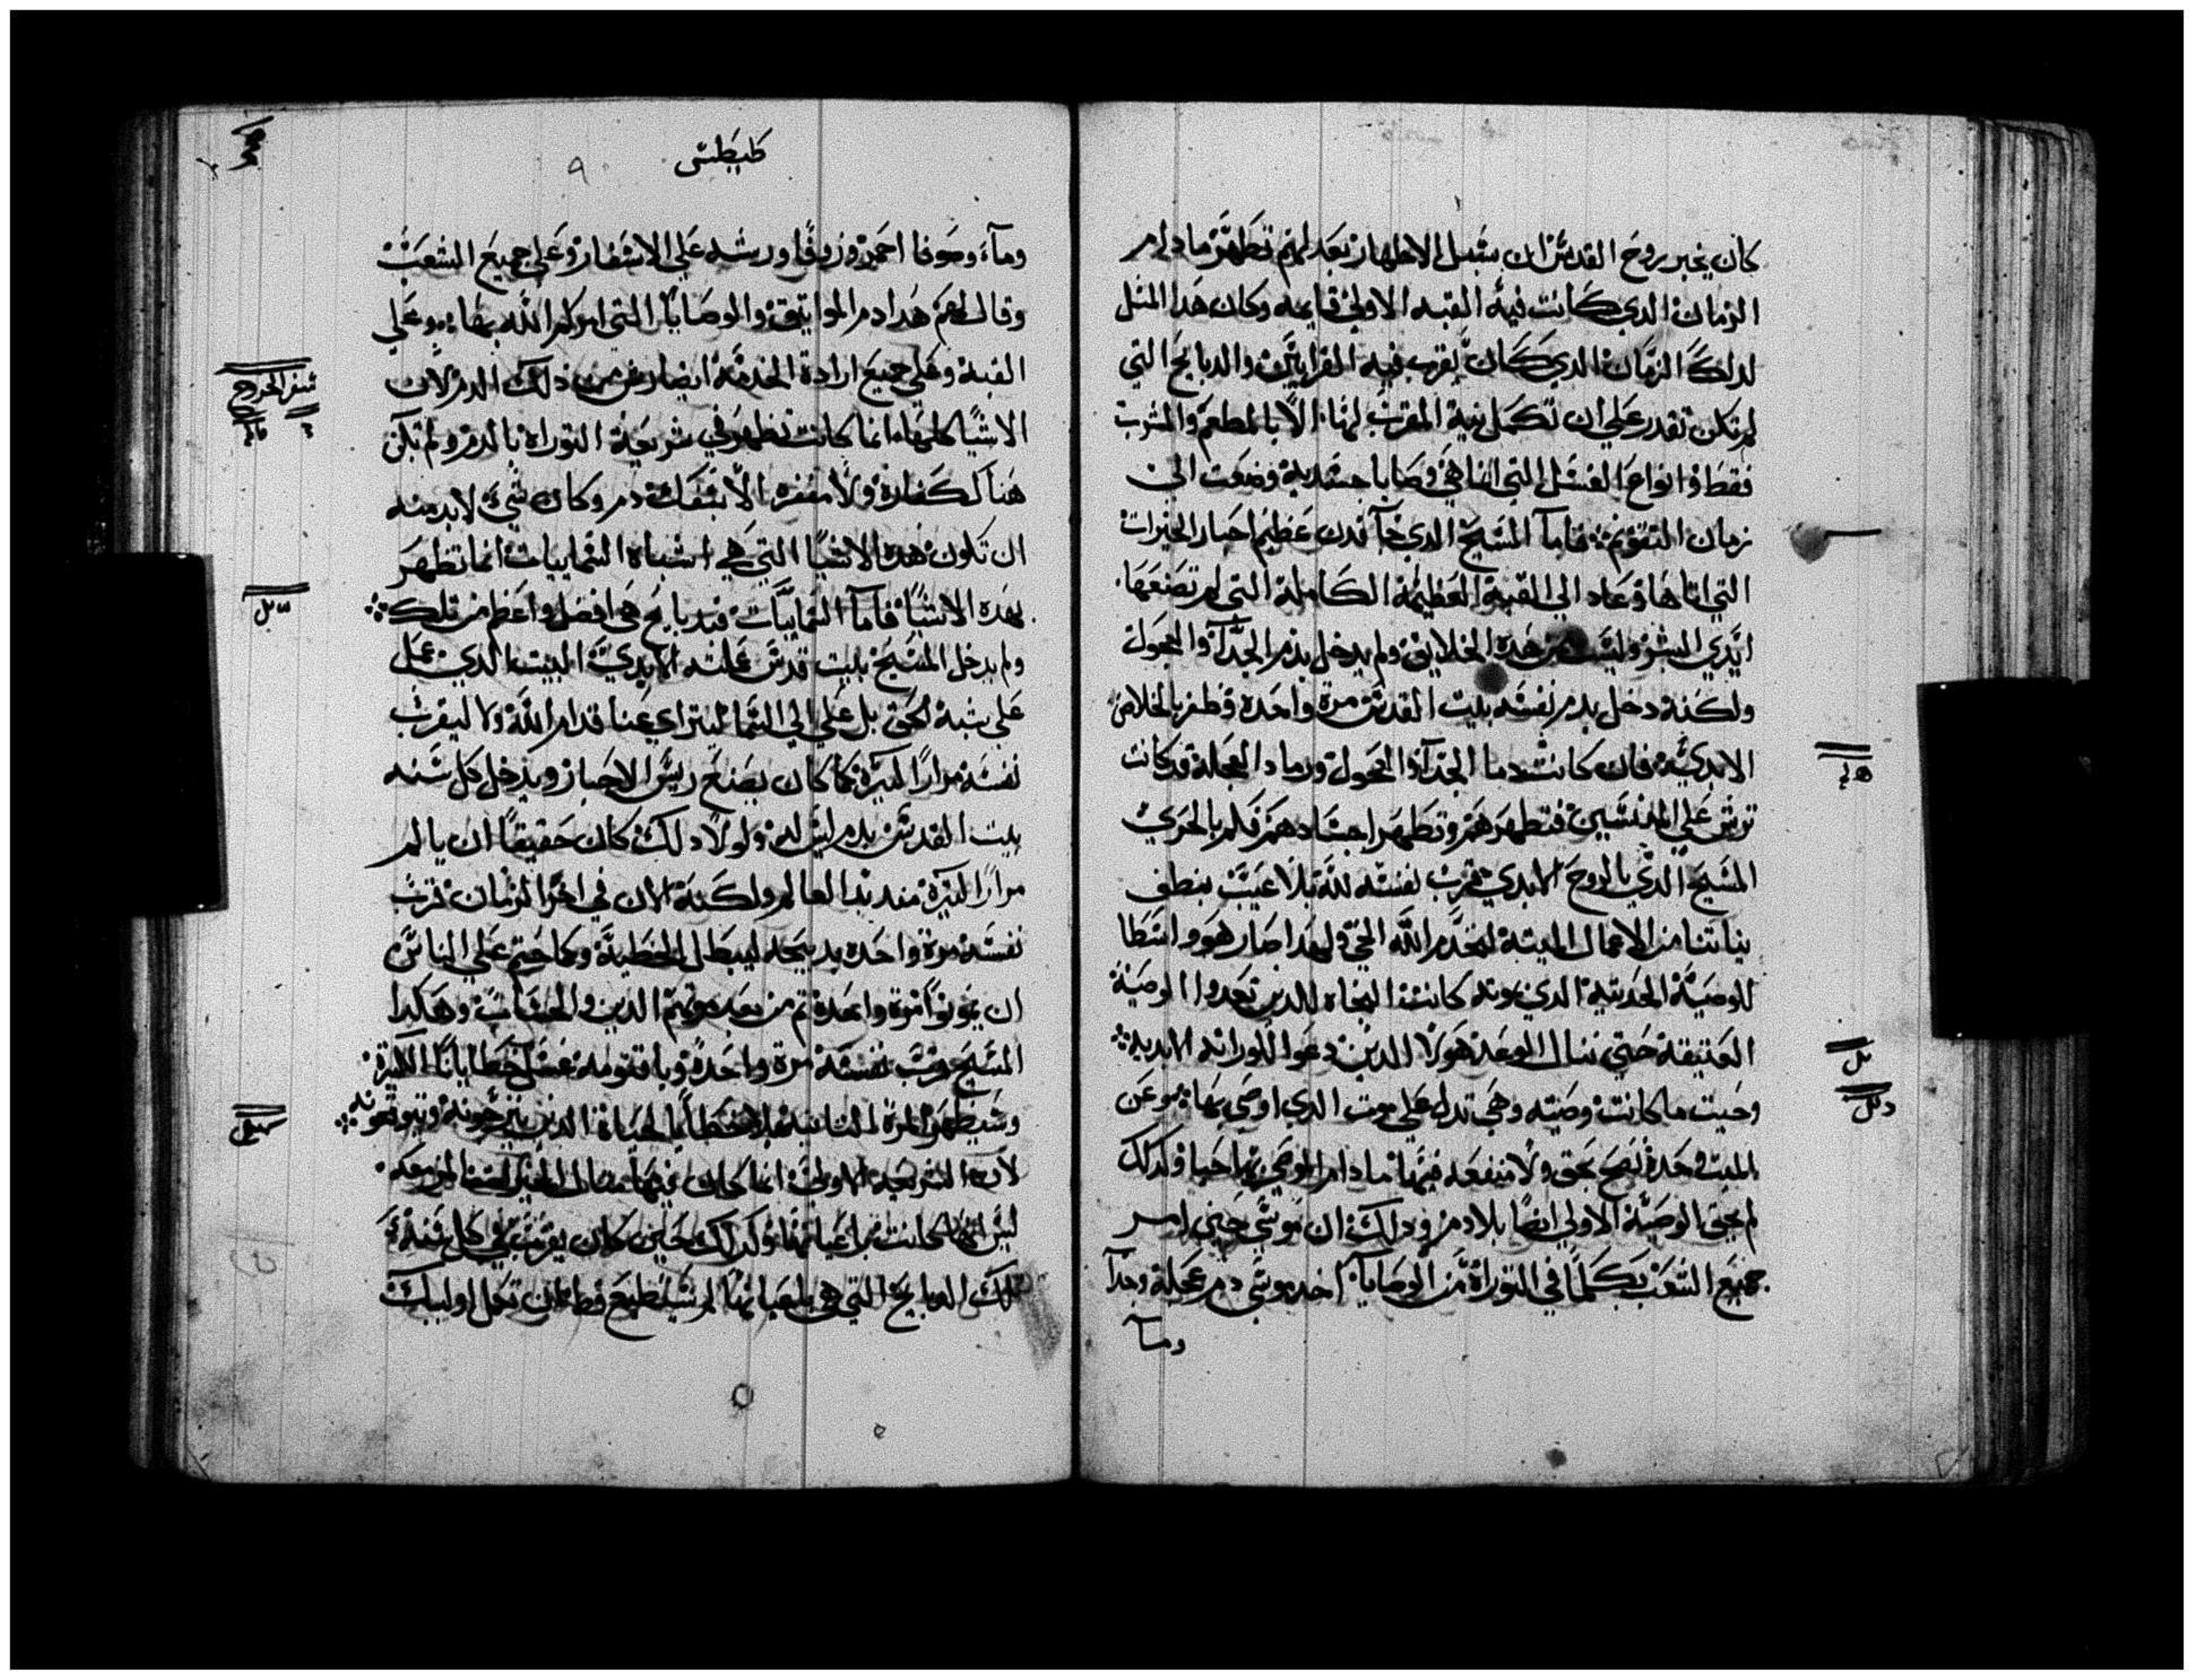 كان يخبر روح القدس ان سبيل الاطهار بعد لم تظهر ما دام
الزمان الدي كانت فيه القبه الاولى قايمه وكان هدا المثل
لدلك الزمان الدي كان يقرب فيه القرابين والدبايح التي
لم تكن تقدر علي ان تكمل نية المقرب لها الا بالمطعم والمشرب
فقط وانواع الغسل التي انما هي وصايا جسديه وضعت الى
زمان التقويم فاما المسيح الدي جآ فدن عظيم احبار الخيرات
التي اتاها وعاد الي القبة العظيمة الكاملة التي لم تصنعها
ايدي البشر وليست من هده الخلايق ولم يدخل بدم الجدآ والعجول
ولكنه دخل بدم نفسه بيت القدس مرة واحده وظفر بالخلاص
الابدي فان كانت دما الجدآ والعجول ورماد العجلة قد كانت
ترش علي المدنسين فتطهرهم وتطهر اجسادهم فكم بالحري
المسيح الدي بالروح الابدي قرب نفسه لله بلا عيب ينطف
نياتنا من الاعمال الميته لنخدم الله الحي ولهدا صار هو واسطا
للوصية الحديثه الدي بموته كانت النجاه للدين تعدوا الوصية
العتيقة حتي ننال الوعد هولا الدين دعوا للوراثه الابديه
وحيت ما كانت وصيه وهي تدل علي موت الدي اوصي بها وعن
الميت وحده تصح بحق ولا منفعه فيها ما دام الموصي بها حيا وكدلك
لم تحق الوصية الاولي ايضا بلا دم ودلك ان موسي حين امر
جميع الشعب بكلما في التوراة من الوصايا اخد موسي دم عجلة وجدآ
ومآ
كيطس
ومآء وصوفا احمر وزوفا ورشه علي الاسفار وعلي جميع الشعب
وقال لهم هدا دم المواتيق والوصايا التي امركم الله بها وعلي
القبة وعلي جميع ارادة الخدمة ايضا رش من ذلك الدم لان
الاشيا كلها انما كانت تطهر في شريعة التوراة بالدم ولم تكن
هناك كفارة ولا مغفرة الا بسفك دم وكان شي لابد منه
ان تكون هده الاشيا التي هي اشباه السماييات انما تطهر
بهده الاشيا فاما السماييات فبدبايح هي افضل واعظم من تلك
ولم يدخل المسيح بيت قدس عملته الايدي البيت الدي عمل
علي شبه الحق بل علي الي السما ليتراي عنا قدام الله ولا ليقرب
نفسه مرارا كثيرة كما كان يصنع رييس الاحبار ويدخل كل سنه
بيت القدس بدم ليس له ولولا دلك كان حقيقا ان يالم
مرارا كثيرة مند بدا العالم ولكنه الان في اخر الزمان قرب
نفسه مرة واحده بدبيحه ليبطل الخطية وكما حتم علي الناس
ان يموتوا مرة واحدة تم من بعد موتهم الدين والحساب وهكدا
المسيح قرب نفسه مرة واحدة وباقنومه غسل خطايانا الكثيرة
وسيظهر المرة الثانيه بلا خطايا لحياة الدين يترجونه ويتوقعونه
لان الشريعه الاولى انما كان فيها مثال الخيرات المزمعه
ليس انها كانت باعيانها وكدلك حين كان يقرب في كل سنة
تلك الدبايح التي هي باعيانها لم تستطيع قط ان تكمل اوليك
سفر الخروج